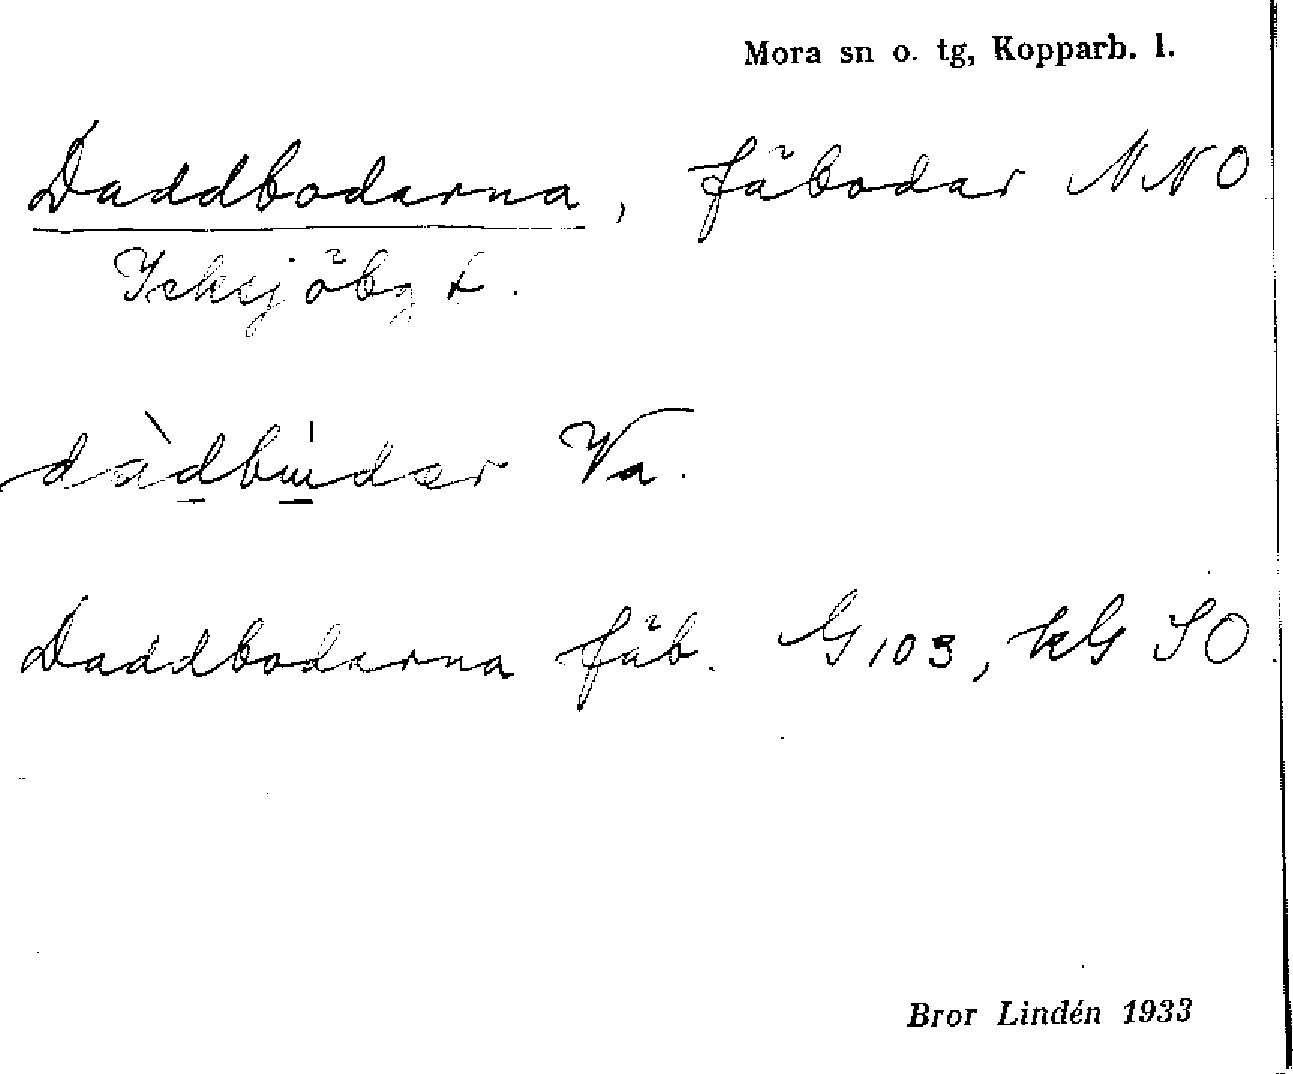 Mora sn o. tg, Kopparb. l.
Daddbodarna, fäbodar NNO
dàdbùdær Va.
Daddbodarna fäb. G 103, kG SO
Bror Lindén 1933